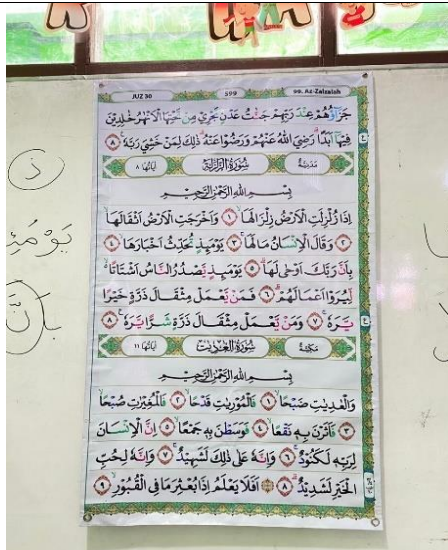 JUZ 30 599 99. Az-Zalzalah
جَزَاۤؤُهُمْ عِنْدَ رَبِّهِمْ جَنّٰتُ عَدْنٍ تَجْرِيْ مِنْ تَحْتِهَا الْاَنْهٰرُ خٰلِدِيْنَ
فِيْهَآ اَبَدًا ۗرَضِيَ اللّٰهُ عَنْهُمْ وَرَضُوْا عَنْهُ ۗ ذٰلِكَ لِمَنْ خَشِيَ رَبَّهٗ ࣖ ٨
مَدَنِيَّة سُوْرَةُ الزَّلْزَلَة اٰيَاتُهَا ٨
بِسْمِ اللّٰهِ الرَّحْمٰنِ الرَّحِيْمِ
اِذَا زُلْزِلَتِ الْاَرْضُ زِلْزَالَهَاۙ ١ وَاَخْرَجَتِ الْاَرْضُ اَثْقَالَهَاۙ
٢ وَقَالَ الْاِنْسَانُ مَا لَهَاۚ ٣ يَوْمَىِٕذٍ تُحَدِّثُ اَخْبَارَهَاۙ ٤
بِاَنَّ رَبَّكَ اَوْحٰى لَهَاۗ ٥ يَوْمَىِٕذٍ يَّصْدُرُ النَّاسُ اَشْتَاتًا ەۙ
لِّيُرَوْا اَعْمَالَهُمْۗ ٦ فَمَنْ يَّعْمَلْ مِثْقَالَ ذَرَّةٍ خَيْرًا
يَّرَهٗۚ ٧ وَمَنْ يَّعْمَلْ مِثْقَالَ ذَرَّةٍ شَرًّا يَّرَهٗ ࣖ ٨
مَكِّيَّة سُوْرَةُ الْعٰدِيٰت اٰيَاتُهَا ١١
بِسْمِ اللّٰهِ الرَّحْمٰنِ الرَّحِيْمِ
وَالْعٰدِيٰتِ ضَبْحًاۙ ١ فَالْمُوْرِيٰتِ قَدْحًاۙ ٢ فَالْمُغِيْرٰتِ صُبْحًاۙ
٣ فَاَثَرْنَ بِهٖ نَقْعًاۙ ٤ فَوَسَطْنَ بِهٖ جَمْعًاۙ ٥ اِنَّ الْاِنْسَانَ
لِرَبِّهٖ لَكَنُوْدٌۚ ٦ وَاِنَّهٗ عَلٰى ذٰلِكَ لَشَهِيْدٌۚ ٧ وَاِنَّهٗ لِحُبِّ
الْخَيْرِ لَشَدِيْدٌۗ ٨ اَفَلَا يَعْلَمُ اِذَا بُعْثِرَ مَا فِى الْقُبُوْرِۙ ٩
ذ
بِاَنَّ